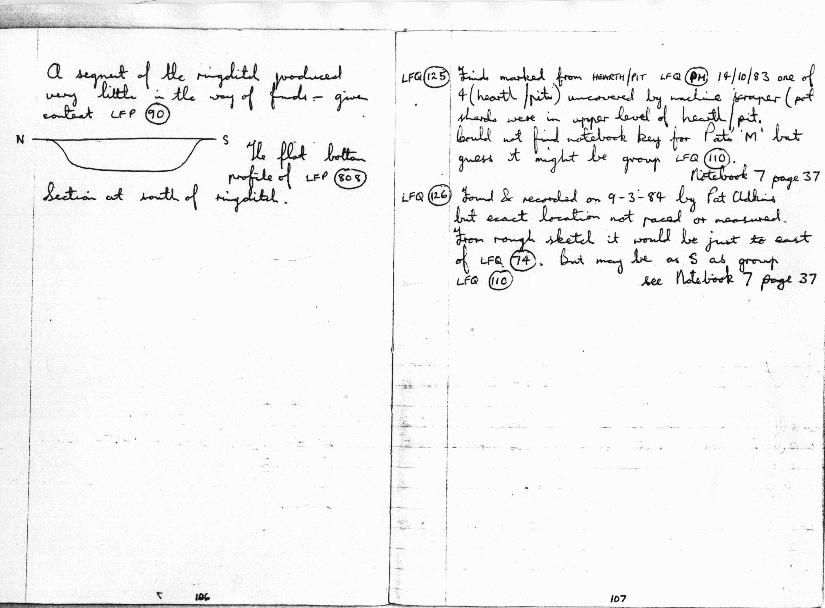 A segment of the ringditch produced
very little in the way of finds - given
context LFP 90
N S
The flat bottom
profile of LFP 808
Section at south of ringditch.
106
LFQ 125 Finds marked from HEARTH/PIT LFQ PM 14/10/83 one of
4 (hearth/pits) uncovered by machine scraper (pot
shards were in upper level of hearth/pit.
Could not find notebook key for Pats 'M' but
guess it might be group LFQ 110.
Notebook 7 page 37
LFQ 126 Found & recorded on 9-3-84 by Pat Adkins
but exact location not paced or measured.
From rough sketch it would be just to east
of LFQ 74. But may be as S as group
LFQ 110 see Notebook 7 page 37
107